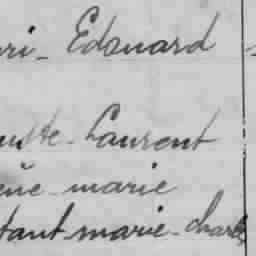 ri - Edouard
uste - Laurent
marie
tant marie - charles